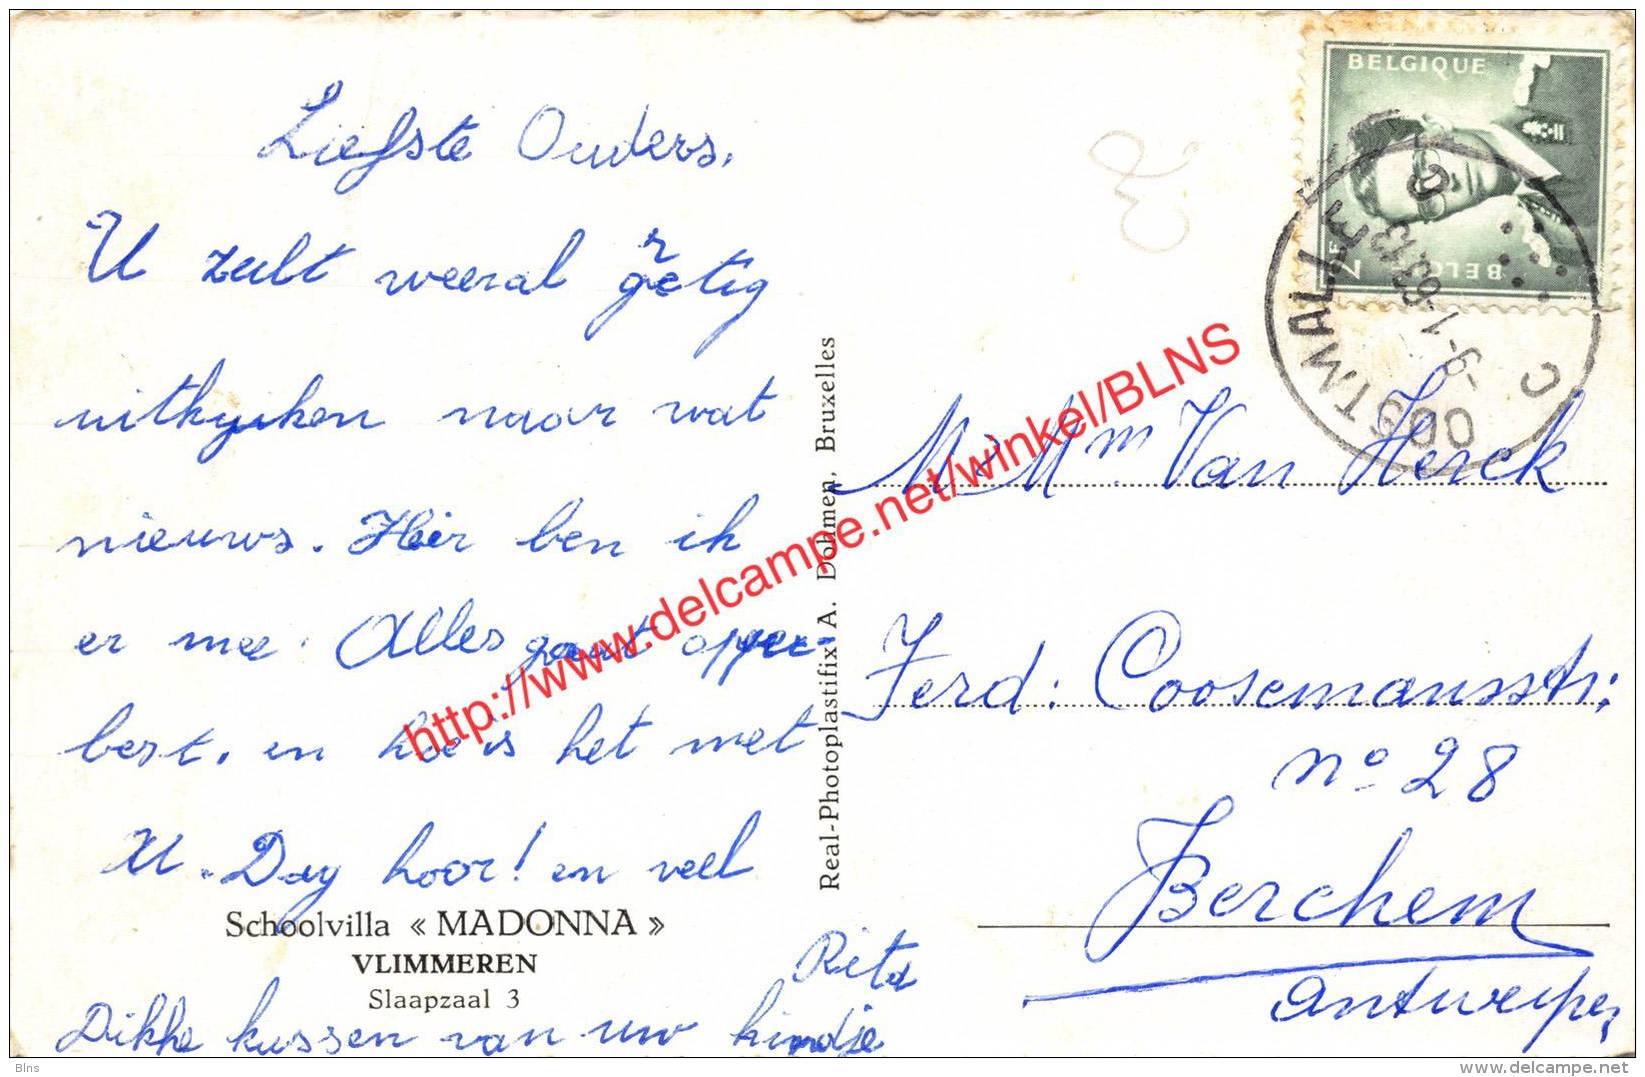 Liefste Ouders,
U zult weeral gretig
uitkyken naar wat
nieuws. Hier ben ik
er mee. Alles gaat opper-
best, en hoe is het met
U. Dag hoor! en veel
Schoolvilla « MADONNA »
VLIMMEREN
Slaapzaal 3
Dikke kussen van uw kindje
Rita
Real-Photoplastifix A. Dohmen, Bruxelles
BELGIQUE
BELGIE
2F
OOSTMALLE
9-1-63.13
C
M. Mm Van Herck
Ferd: Coosemansstr:
n° 28
Berchem
Antwerpen
http://www.delcampe.net/winkel/BLNS
Blns
www.delcampe.net